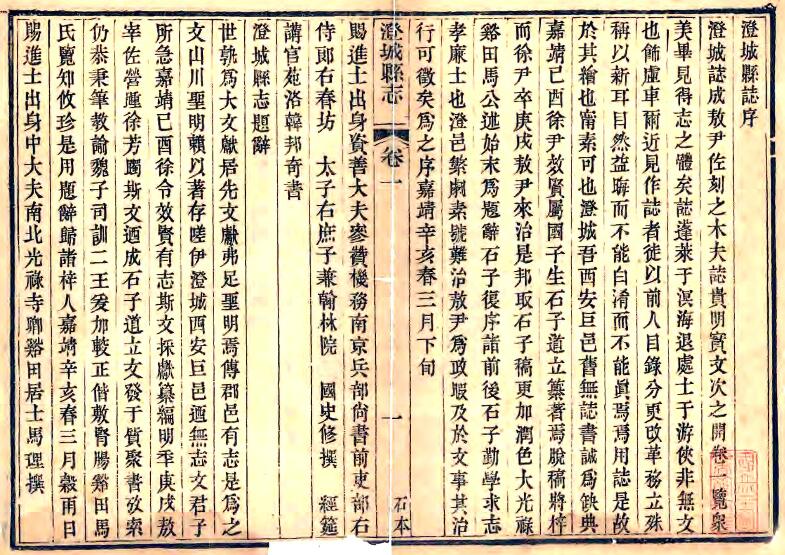 澄城縣誌序
澄城誌成敖尹佐刻之木夫誌貴明實文次之開卷一覽衆
美畢見得志之體矣誌蓬萊于溟海退處士于游俠非無文
也飾虛車爾近見作誌者徒以前人目錄分更改革務立殊
稱以新耳目然益聯而不能白淆而不能眞焉焉用誌是故
於其繪也甯素可也澄城吾西安巨邑舊無誌書誠爲缺典
嘉靖己酉徐尹效賢屬國子生石子道立纂著焉脫稿將梓
而徐尹卒庚戌敖尹來治是邦取石子稿更加潤色大光祿
谿田馬公述始末爲題辭石子復序諸前後石子勤學求志
孝廉士也澄邑繁劇素號難治敖尹爲政暇及於文事其治
行可徵矣爲之序嘉靖辛亥春三月下旬
澄城縣志
卷一
一
石本
賜進士出身資善大夫參贊機務南京兵部尙書前吏部右
侍郎右春坊 太子右庶子兼翰林院 國史修撰 經筵
講官苑洛韓邦奇書
澄城縣志題辭
世孰爲大文獻居先文獻弗足聖明焉傳郡邑有志是爲之
文山川聖明賴以著存嗟伊澄城西安巨邑迺無志文君子
所急嘉靖己酉徐令效賢有志斯文採獻纂編明年庚戌敖
宰佐營踵徐芳躅斯文迺成石子道立文發于質聚書攷索
仍恭秉筆教諭魏子司訓二王爰加較正偕敷腎腸谿田馬
氏覽知攸珍是用題辭歸諸梓人嘉靖辛亥春三月穀雨日
賜進士出身中大夫南北光祿寺卿谿田居士馬理撰